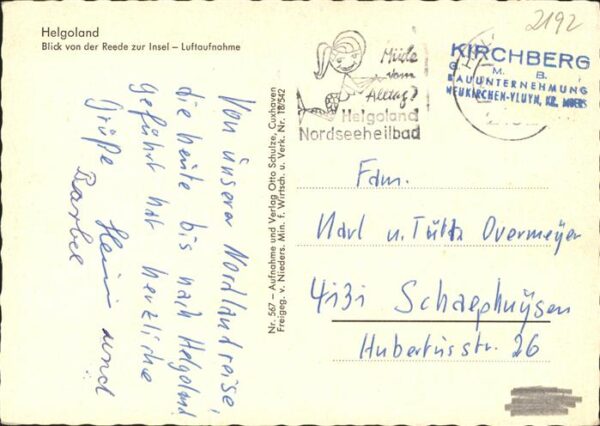 Helgoland
Blick von der Reede zur Insel – Luftaufnahme
2192
Müde
vom
Alltag?
Helgoland
Nordseeheilbad
KIRCHBERG
G. M. B.
BAUUNTERNEHMUNG
NEUKIRCHEN-VLUYN, KR. MOERS
Von unserer Nordlandreise,
die heute bis nach Helgoland
geführt hat herzliche
Grüße Heini und
Bärbel
Nr. 567 – Aufnahme und Verlag Otto Schulze, Cuxhaven
Freigeg. v. Nieders. Min. f. Wirtsch. u. Verk. Nr. 18/542
Fam.
Karl u. Overmeyer
4131 Schaephuysen
Hubertusstr. 26